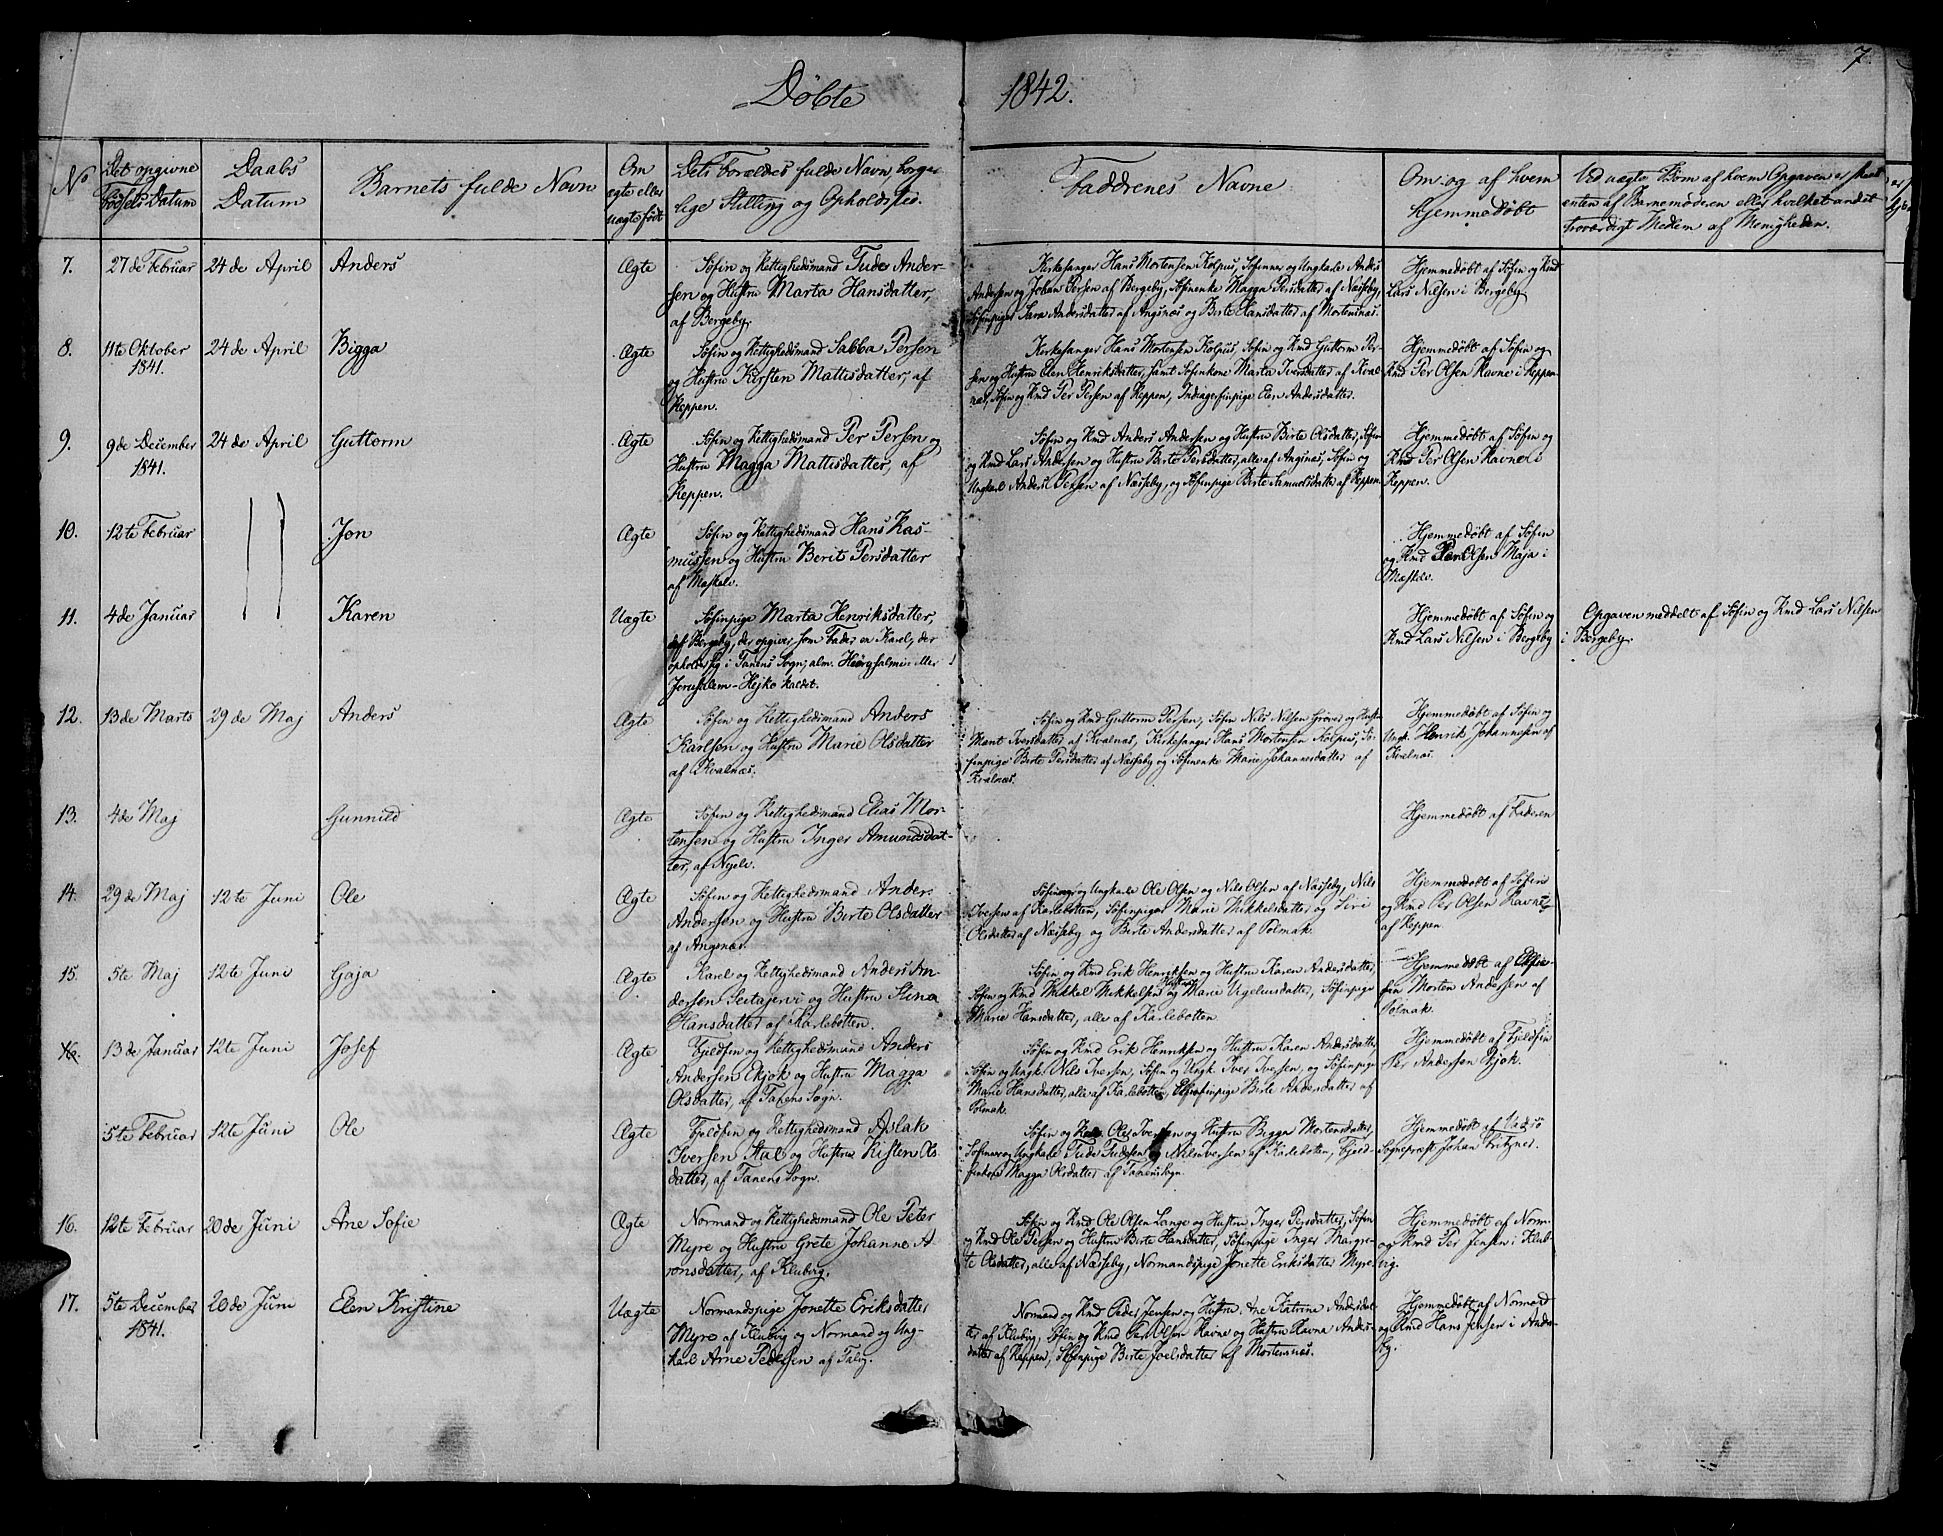 Döbte 1842. 7.
No
Det opgivne Födsels Datum
Daabs Datum
Barnets fulde Navn
Om ægte eller uægte född
Dets Forældres fulde Navn, borgerlige Stilling og Opholdssted.
Faddrenes Navne
Om og af hvem hjemmedöbt
Ved uægte Börn af hvem Opgaven er skeet enten af Barnemoderen eller hvilket andet troværdigt Medlem af Menigheden.
7. 27de Februar 24de April Anders Ægte
Söfin og Rettighedsmand Tude Ander-
sen og Hustru Marta Hansdatter,
af Bergeby.
Kirkesanger Hans Mortensen Kolpus, Söfinner og Ungkarle Anders
Andersen og Johan Persen af Bergeby, Söfinenke Magga Persdatter af Næsseby,
Söfinpiger Sara Andersdatter af Angsnæs og Birte Hansdatter af Mortensnæs.
Hjemmedöbt af Söfin og Rmd
Lars Nilsen i Bergeby
8. 11te Oktober 1841. 24de April Bigga Ægte
Söfin og Rettighedsmand Sabba Persen
og Hustru Kirsten Mattisdatter, af
Reppen.
Kirkesanger Hans Mortensen Kolpus, Söfin og Rmd Guttorm Per-
sen og Hustru Elen Henriksdatter, samt Söfinkone Marta Iversdatter af Kval-
næs, Söfin og Rmd Per Persen af Reppen, Indiagerfinpige Elen Andersdatter.
Hjemmedöbt af Söfin og
Rmd Per Olsen Ravne i Reppen
9. 9de December 1841. 24de April Guttorm Ægte
Söfin og Rettighedsmand Per Persen og
Hustru Magga Mattisdatter, af
Reppen.
Söfin og Rmd Anders Andersen og Hustru Birte Olsdatter, Söfin
og Rmd Lars Andersen og Hustru Birte Persdatter, alle af Angsnæs, Söfin og
Ungkarl Anders Persen af Næsseby, og Söfinpige Birte Samuelsdatter af Reppen.
Hjemmedöbt af Söfin og
Rmd Per Olsen Ravne i
Reppen.
10. 12te Februar Jon Ægte
Söfin og Rettighedsmand Hans Ras-
mussen og Hustru Berit Persdatter
af Maskele.
Hjemmedöbt af Söfin
og Rmd Olsen Maja i
Maskele.
11. 4de Januar Karen Uægte
Söfinpige Marta Henriksdatter,
af Bergeby, der opgiver som Fader en Karel, der
opholder sig i Tanens Sogn, alm. eller
Jerusalem-Hejko kaldet.
Hjemmedöbt af Söfin og
Rmd Lars Nilsen i Bergeby
Opgaven meddelt af Söfin og Rmd Lars Nilsen
i Bergeby.
12. 13de Marts 29de Maj Anders Ægte
Söfin og Rettighedsmand Anders
Karlsen og Hustru Marie Olsdatter
af Kvalnæs.
Söfin og Rmd Guttorm Persen, Söfin Nils Nilsen Gröver og Hustru
Marit Iversdatter af Kvalnæs, Kirkesanger Hans Mortensen Kolpus, Sö-
finpige Birte Persdatter af Næsseby og Söfinenke Marie Johannesdatter af
Kvalnæs.
Hjemmedöbt af Söfin og
Ungk. Henrik Johannesen af
Kvalnæs.
13. 4de Maj Gunnild Ægte
Söfin og Rettighedsmand Elias Mor-
tensen og Hustru Inger Amundsdat-
ter, af Nyelv.
Hjemmedöbt af Faderen
14. 29de Maj 12te Juni Ole Ægte
Söfin og Rettighedsmand Anders
Andersen og Hustru Birte Olsdatter
af Angsnæs.
Söfinner og Ungkarle Ole Olsen og Nils Olsen af Næsseby, Nils
Iversen af Karlebotten, Söfinpiger Marie Mikkelsdatter og Siri
Olsdatter af Næsseby og Birte Andersdatter af Polmak.
Hjemmedöbt af Söfin
og Rmd Per Olsen Ravne
af Reppen.
15. 5te Maj 12te Juni Gaja Ægte
Karel og Rettighedsmand Anders An-
dersen Seitajervi og Hustru Stina
Hansdatter af Karlebotten.
Söfin og Rmd Erik Henriksen og Hustru Karen Andersdatter,
Söfin og Rmd Mikkel Mikkelsen og Hustru Marie Ugeliusdatter, Söfinpige
Marie Hansdatter, alle af Karlebotten
Hjemmedöbt af
Morten Andersen af
Polmak.
16. 13de Januar 12te Juni Josef Ægte
Fjeldfin og Rettighedsmand Anders
Andersen Ekjok og Hustru Magga
Olsdatter, af Tanens Sogn.
Söfin og Rmd Erik Henriksen og Hustru Karen Andersdatter,
Söfin og Ungk. Nils Iversen, Söfin og Ungk. Iver Iversen, og Söfinpige
Marie Hansdatter, alle af Karlebotten, Birte Andersdatter af
Polmak.
Hjemmedöbt af Fjeldfin
Per Andersen Ekjok.
5te Februar 12te Juni Ole Ægte
Fjeldfin og Rettighedsmand Aslak
Iversen Stal og Hustru Kisten Ols-
datter, af Tanens Sogn.
Söfin og Rmd Ole Iversen og Hustru Bigga Mortensdatter,
Söfinner og Ungkarle Tude Tudesen og Nils Iversen af Karlebotten, Fjeld-
finkone Magga Olsdatter af Tanens Sogn.
Hjemmedöbt af Vadsö
Sognepræst Johan Fritzner.
16. 12te Februar 20de Juni Ane Sofie Ægte
Normand og Rettighedsmand Ole Peter
Myre og Hustru Grete Johanne A-
ronsdatter, af Kluberg.
Söfin og Rmd Ole Olsen Lange og Hustru Inger Persdatter, Söfin
og Rmd Ole Persen og Hustru Birte Hansdatter, Söfinpige Inger Margre-
te Olsdatter, alle af Næsseby, Normandspige Jonette Eriksdatter Myre
Hjemmedöbt af Norm.
og Rmd Per Jensen i Klub-
vig.
17. 5te December 1841. 20de Juni Elen Kristine Uægte
Normandspige Jonette Eriksdatter
Myre af Kluberg og Normand og Ung-
karl Arne Pedersen af Talvig.
Normand og Rmd Peder Jensen og Hustru Ane Katrine Andersdat-
ter af Kluberg, Söfin og Rmd Per Olsen Ravne og Hustru Ravna Anders-
datter af Reppen, Söfinpige Birte Joelsdatter af Mortensnæs.
Hjemmedöbt af Normand
og Rmd Hans Jensen i Anders-
by.